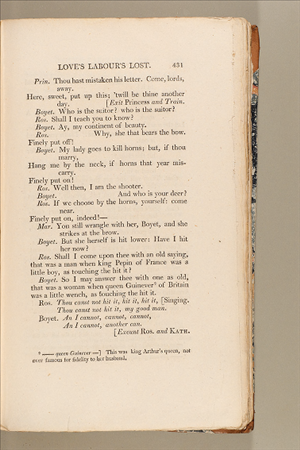 LOVE'S LABOUR'S LOST. 431
Prin. Thou hast mistaken his letter. Come, lords,
away.
Here, sweet, put up this; 'twill be thine another
day. [Exit Princess and Train.
Boyet. Who is the suitor? who is the suitor?
Ros. Shall I teach you to know?
Boyet. Ay, my continent of beauty.
Ros. Why, she that bears the bow.
Finely put off!
Boyet. My lady goes to kill horns; but, if thou
marry,
Hang me by the neck, if horns that year mis-
carry.
Finely put on!
Ros. Well then, I am the shooter.
Boyet. And who is your deer?
Ros. If we choose by the horns, yourself: come
near.
Finely put on, indeed!—
Mar. You still wrangle with her, Boyet, and she
strikes at the brow.
Boyet. But she herself is hit lower: Have I hit
her now?
Ros. Shall I come upon thee with an old saying,
that was a man when king Pepin of France was a
little boy, as touching the hit it?
Boyet. So I may answer thee with one as old,
that was a woman when queen Guinever⁹ of Britain
was a little wench, as touching the hit it.
Ros. Thou canst not hit it, hit it, hit it, [Singing.
Thou canst not hit it, my good man.
Boyet. An I cannot, cannot, cannot,
An I cannot, another can.
[Exeunt Ros. and Kath.
⁹ —— queen Guinever —] This was king Arthur's queen, not
over famous for fidelity to her husband.